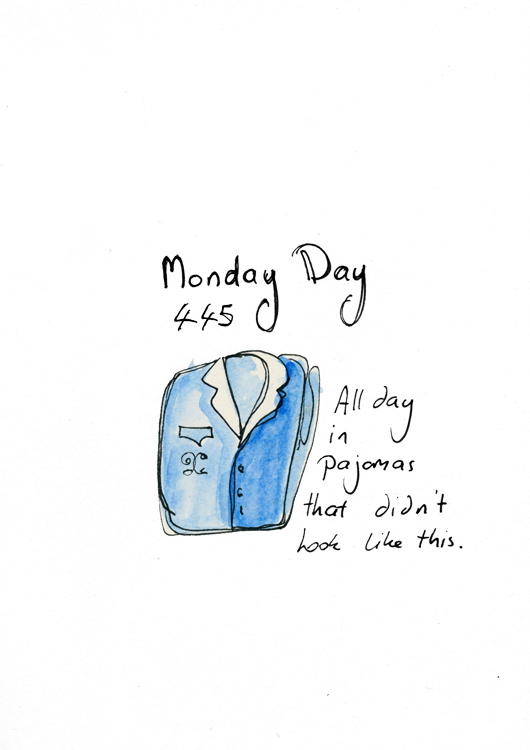 Monday Day
445
All day
in
pajamas
that didn't
look like this.